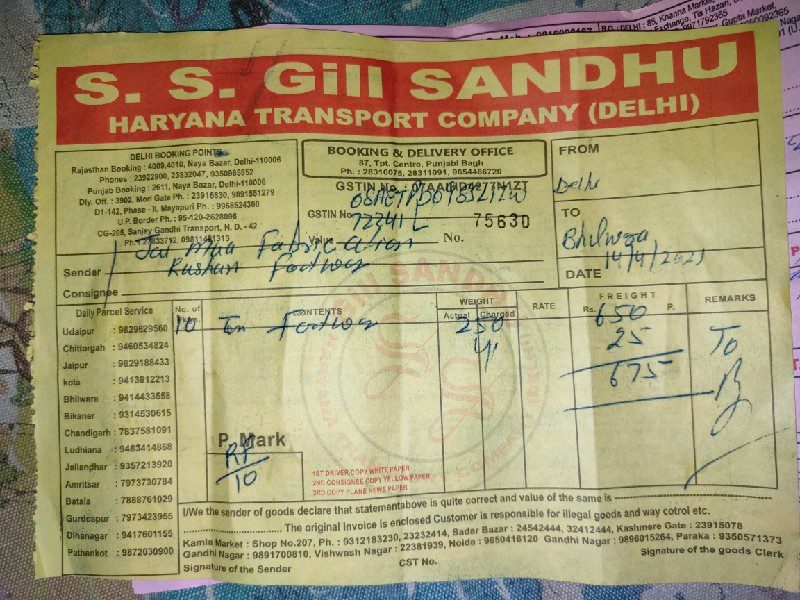 S. S. Gill SANDHU
HARYANA TRANSPORT COMPANY (DELHI)
DELHI BOOKING POINTS
Rajasthan Booking : 4009,4010, Naya Bazar, Delhi-110006
Phones : 23922800, 23832047, 9350985952
Punjab Booking : 2611, Naya Bazar, Delhi-110006
Dly. Off : 3902, Mori Gate Ph : 23918830, 9891551279
D1-142, Phase - II, Mayapuri Ph. : 9968524360
U.P. Border Ph. : 95-120-2628098
CG-205, Sanjay Gandhi Transport, N. D. - 42
BOOKING & DELIVERY OFFICE
87, Tpt. Centre, Punjabi Bagh
Ph. : 28316075, 28311091, 9854466720
GSTIN No.
GSTIN No. 72341L
Value
No. 75630
FROM
Delhi
TO
DATE 14/4/2021
Sender Jai Maa Fabrication
Consignee Footwear
Daily Parcel Service
Udaipur : 9829629560
Chittorgah : 9460534824
Jaipur : 9829188433
kota : 9413912213
Bhilware : 9414433558
Bikaner : 9314530615
Chandigarh : 7837581091
Ludhiana : 9463414868
Jallandhar : 9357213920
Amritsar : 7973730784
Batala : 7888761029
Gurdespur : 7973423965
Dinanagar : 9417601155
Pathankot : 9872030900
No. of CONTENTS WEIGHT RATE FREIGHT REMARKS
Actual Charged Rs. P.
10 Footwear 250 650 To
25
675
P. Mark
RF
10
1ST DRIVER COPY WHITE PAPER
2ND CONSIGNEE COPY YELLOW PAPER
3RD COPY PLANE NEWS PAPER
I/We the sender of goods declare that statementabove is quite correct and value of the same is
The original invoice is enclosed Customer is responsible for illegal goods and way cotrol etc.
Kamla Market : Shop No.207, Ph. : 9312183230, 23232414, Sadar Bazar : 24542444, 32412444, Kashmere Gate : 23915078
Gandhi Nagar : 9891700810, Vishwash Nagar : 22381939, Noida : 9650416120 Gandhi Nagar : 9896015264, Paraka : 9350571373
Signature of the Sender CST No. Signature of the goods Clerk